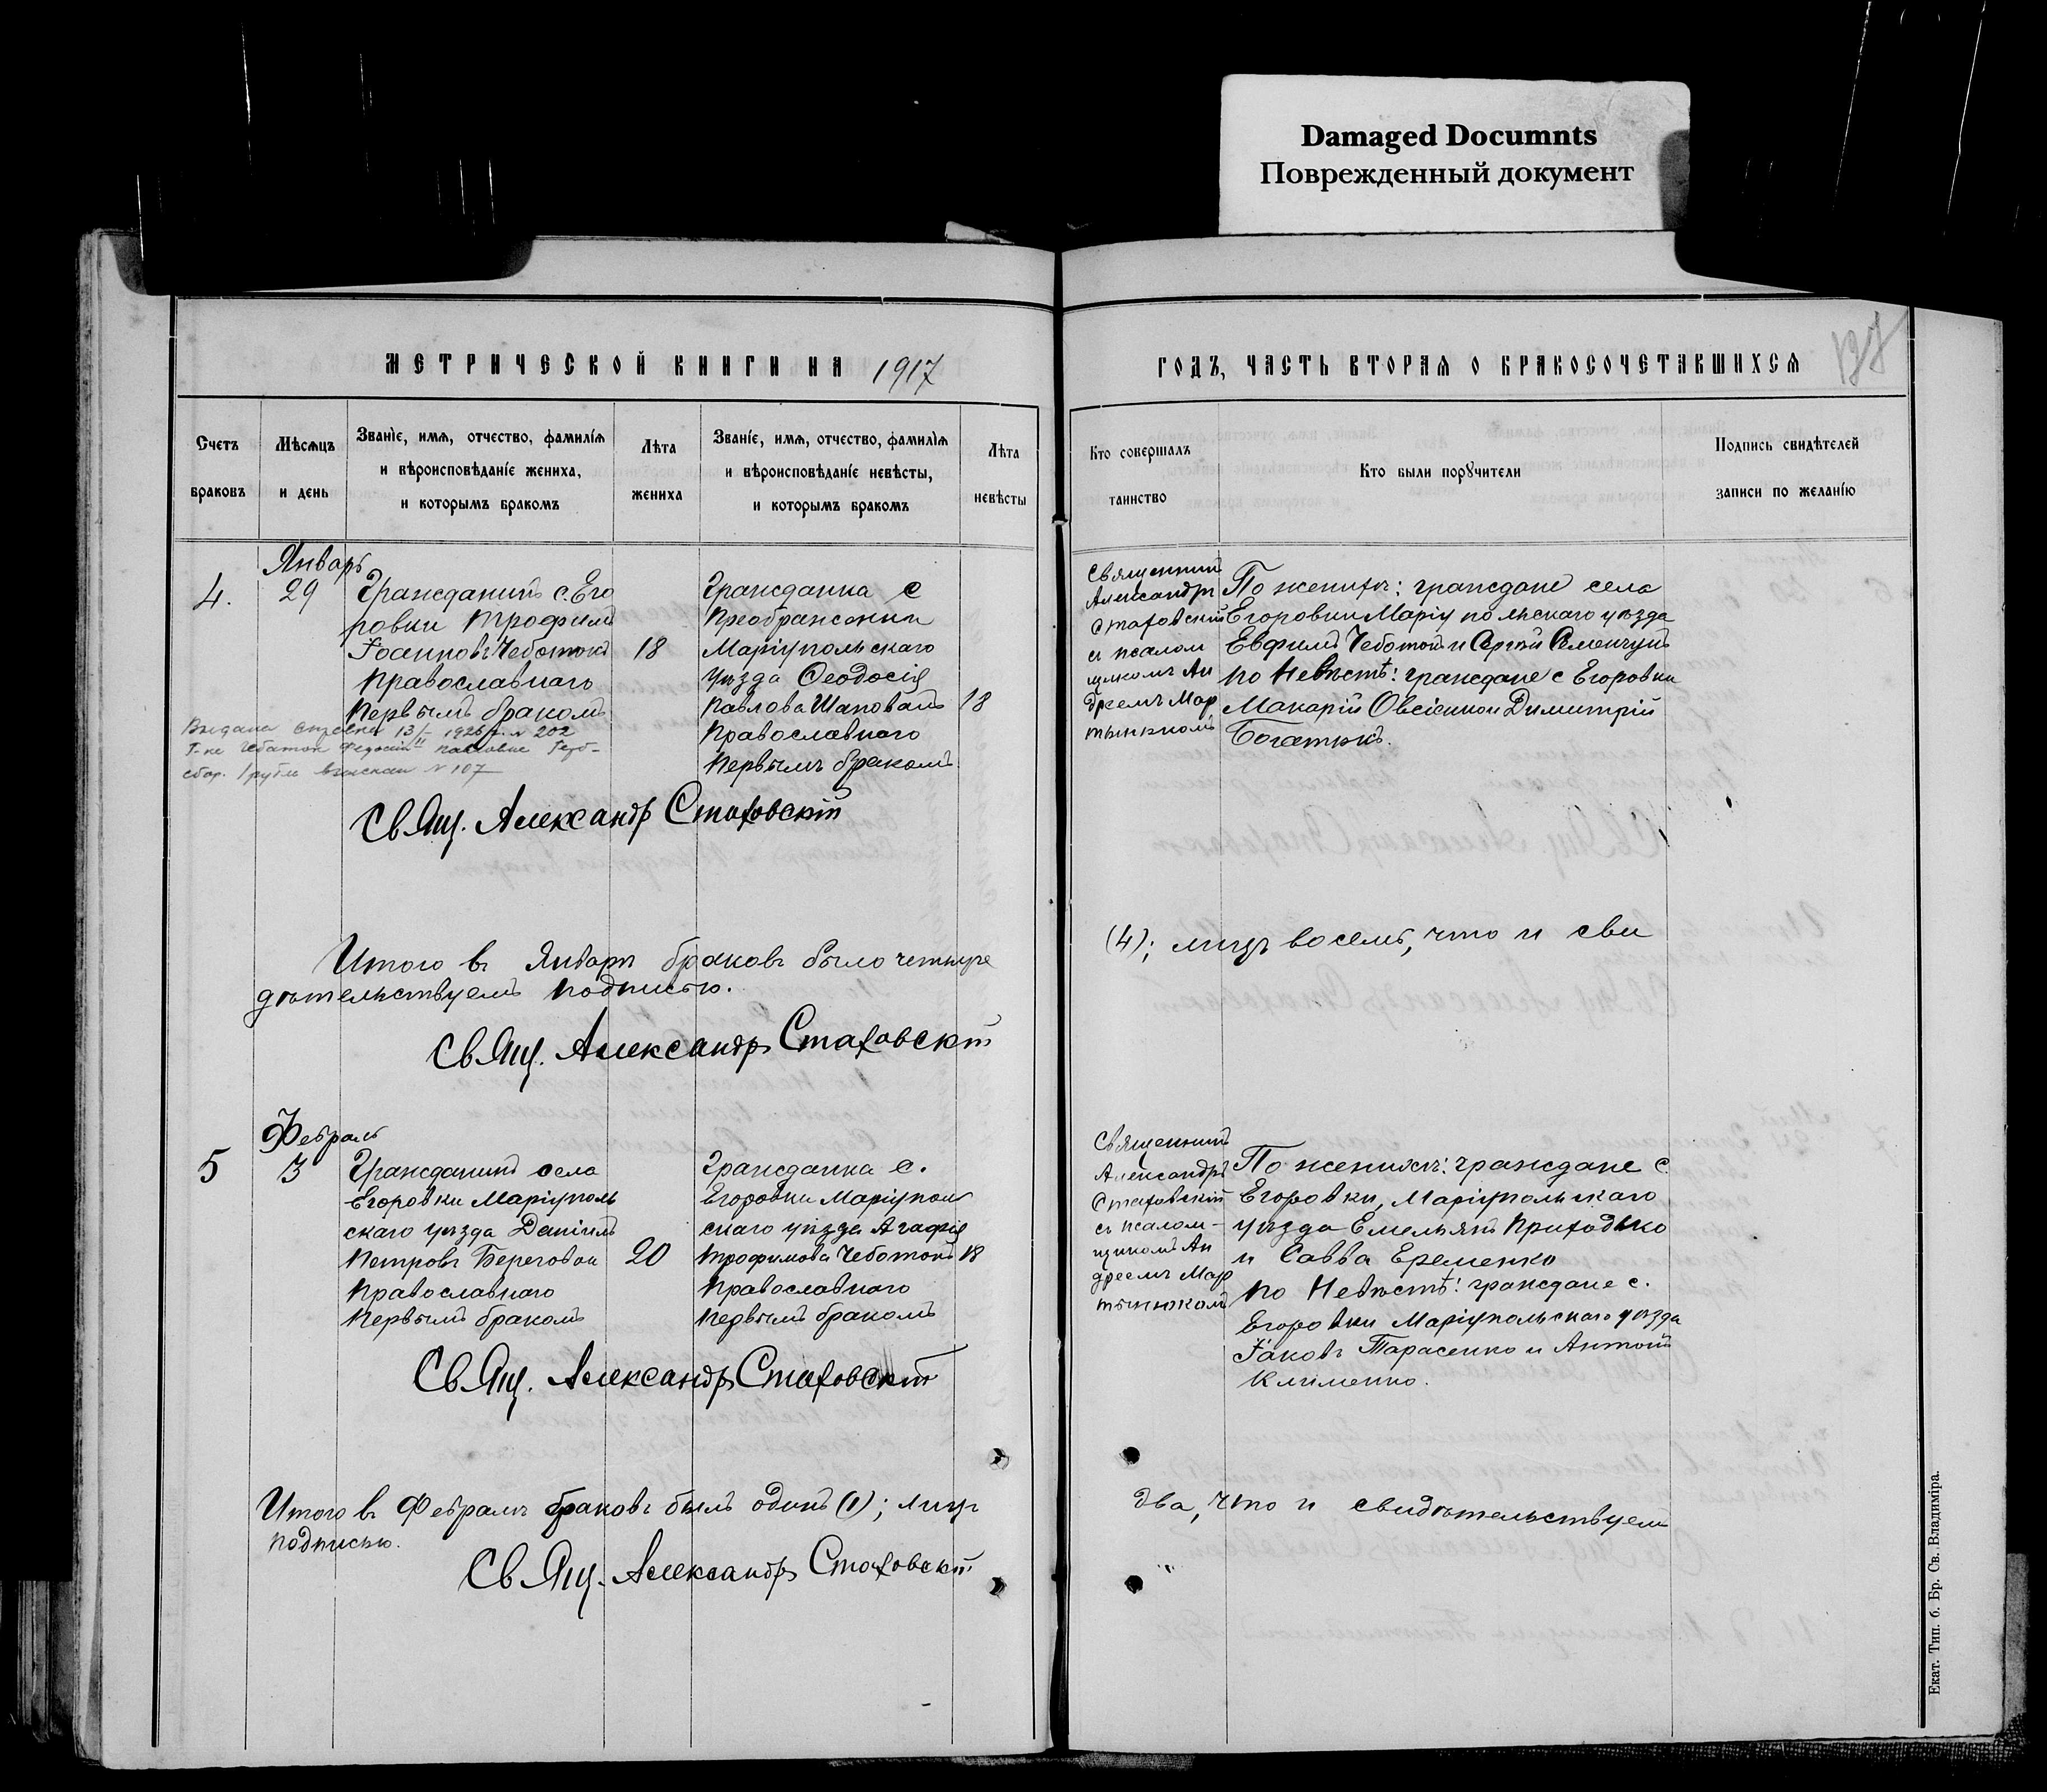 Damaged Documnts
Поврежденный документ
МЕТРИЧЕСКОЙ КНИГИ НА 1917
ГОДЪ, ЧАСТЬ ВТОРАЯ О БРАКОСОЧЕТАВШИХСЯ
137
Счетъ браковъ
Мѣсяцъ и день
Званіе, имя, отчество, фамилія
и вѣроисповѣданіе жениха,
и которымъ бракомъ
Лѣта жениха
Званіе, имя, отчество, фамилія
и вѣроисповѣданіе невѣсты,
и которымъ бракомъ
Лѣта невѣсты
Кто совершалъ таинство
Кто были порꙋчители
Подпись свидѣтелей
записи по желанію
Январь
4.
29
Гражданинъ с. Его
ровки Трофимъ
Іоанновъ Чеботокъ
Православнаго
Первымъ бракомъ
18
Гражданка с
Преображенки
Маріупольскаго
уѣзда Ѳеодосія
Павлова Шаповалъ
Православнаго
Первымъ бракомъ
18
Выдана справка 13/ 1926 г. № 202
Г-ке Чебаток Федосии Павловне Герб-
сбор. 1 рубль взыскан № 107
Священникъ
Александръ
Стаховскій
съ псалом
щикомъ Ан
дреемъ Мар
тынюкомъ
По женихѣ: граждане села
Егоровки Маріупольскаго уѣзда
Евфимъ Чеботокъ и Сергѣй
по Невѣстѣ: граждане с Егоровки
Макарій Овсіенко и Димитрій
Богатырь.
Свящ. Александръ Стаховскій
Итого въ Январѣ браковъ было четыре
(4); лицъ восемь, что и сви
дѣтельствуемъ подписью.
Свящ. Александръ Стаховскій
Февраль
5
3
Гражданинъ села
Егоровки Маріуполь
скаго уѣзда Даніилъ
Петровъ Береговой
Православнаго
Первымъ бракомъ
20
Гражданка с.
Егоровки Маріуполь
скаго уѣзда Агафія
Трофимова Чеботокъ
Православнаго
Первымъ бракомъ
18
Священникъ
Александръ
Стаховскій
съ псалом-
щикомъ Ан
дреемъ Мар
тынюкомъ
По женихѣ: граждане с.
Егоровки, Маріупольскаго
уѣзда Емельянъ Приходько
и Савва Еременко
по Невѣстѣ: граждане с.
Егоровки Маріупольскаго уѣзда
Іаковъ Тарасенко и Антоній
Клименко.
Свящ. Александръ Стаховскій
Итого въ Февралѣ браковъ былъ одинъ (1); лицъ
два, что и свидѣтельствуемъ
подписью.
Свящ. Александръ Стаховскій
Екат. Тип. б. Бр. Св. Владиміра.